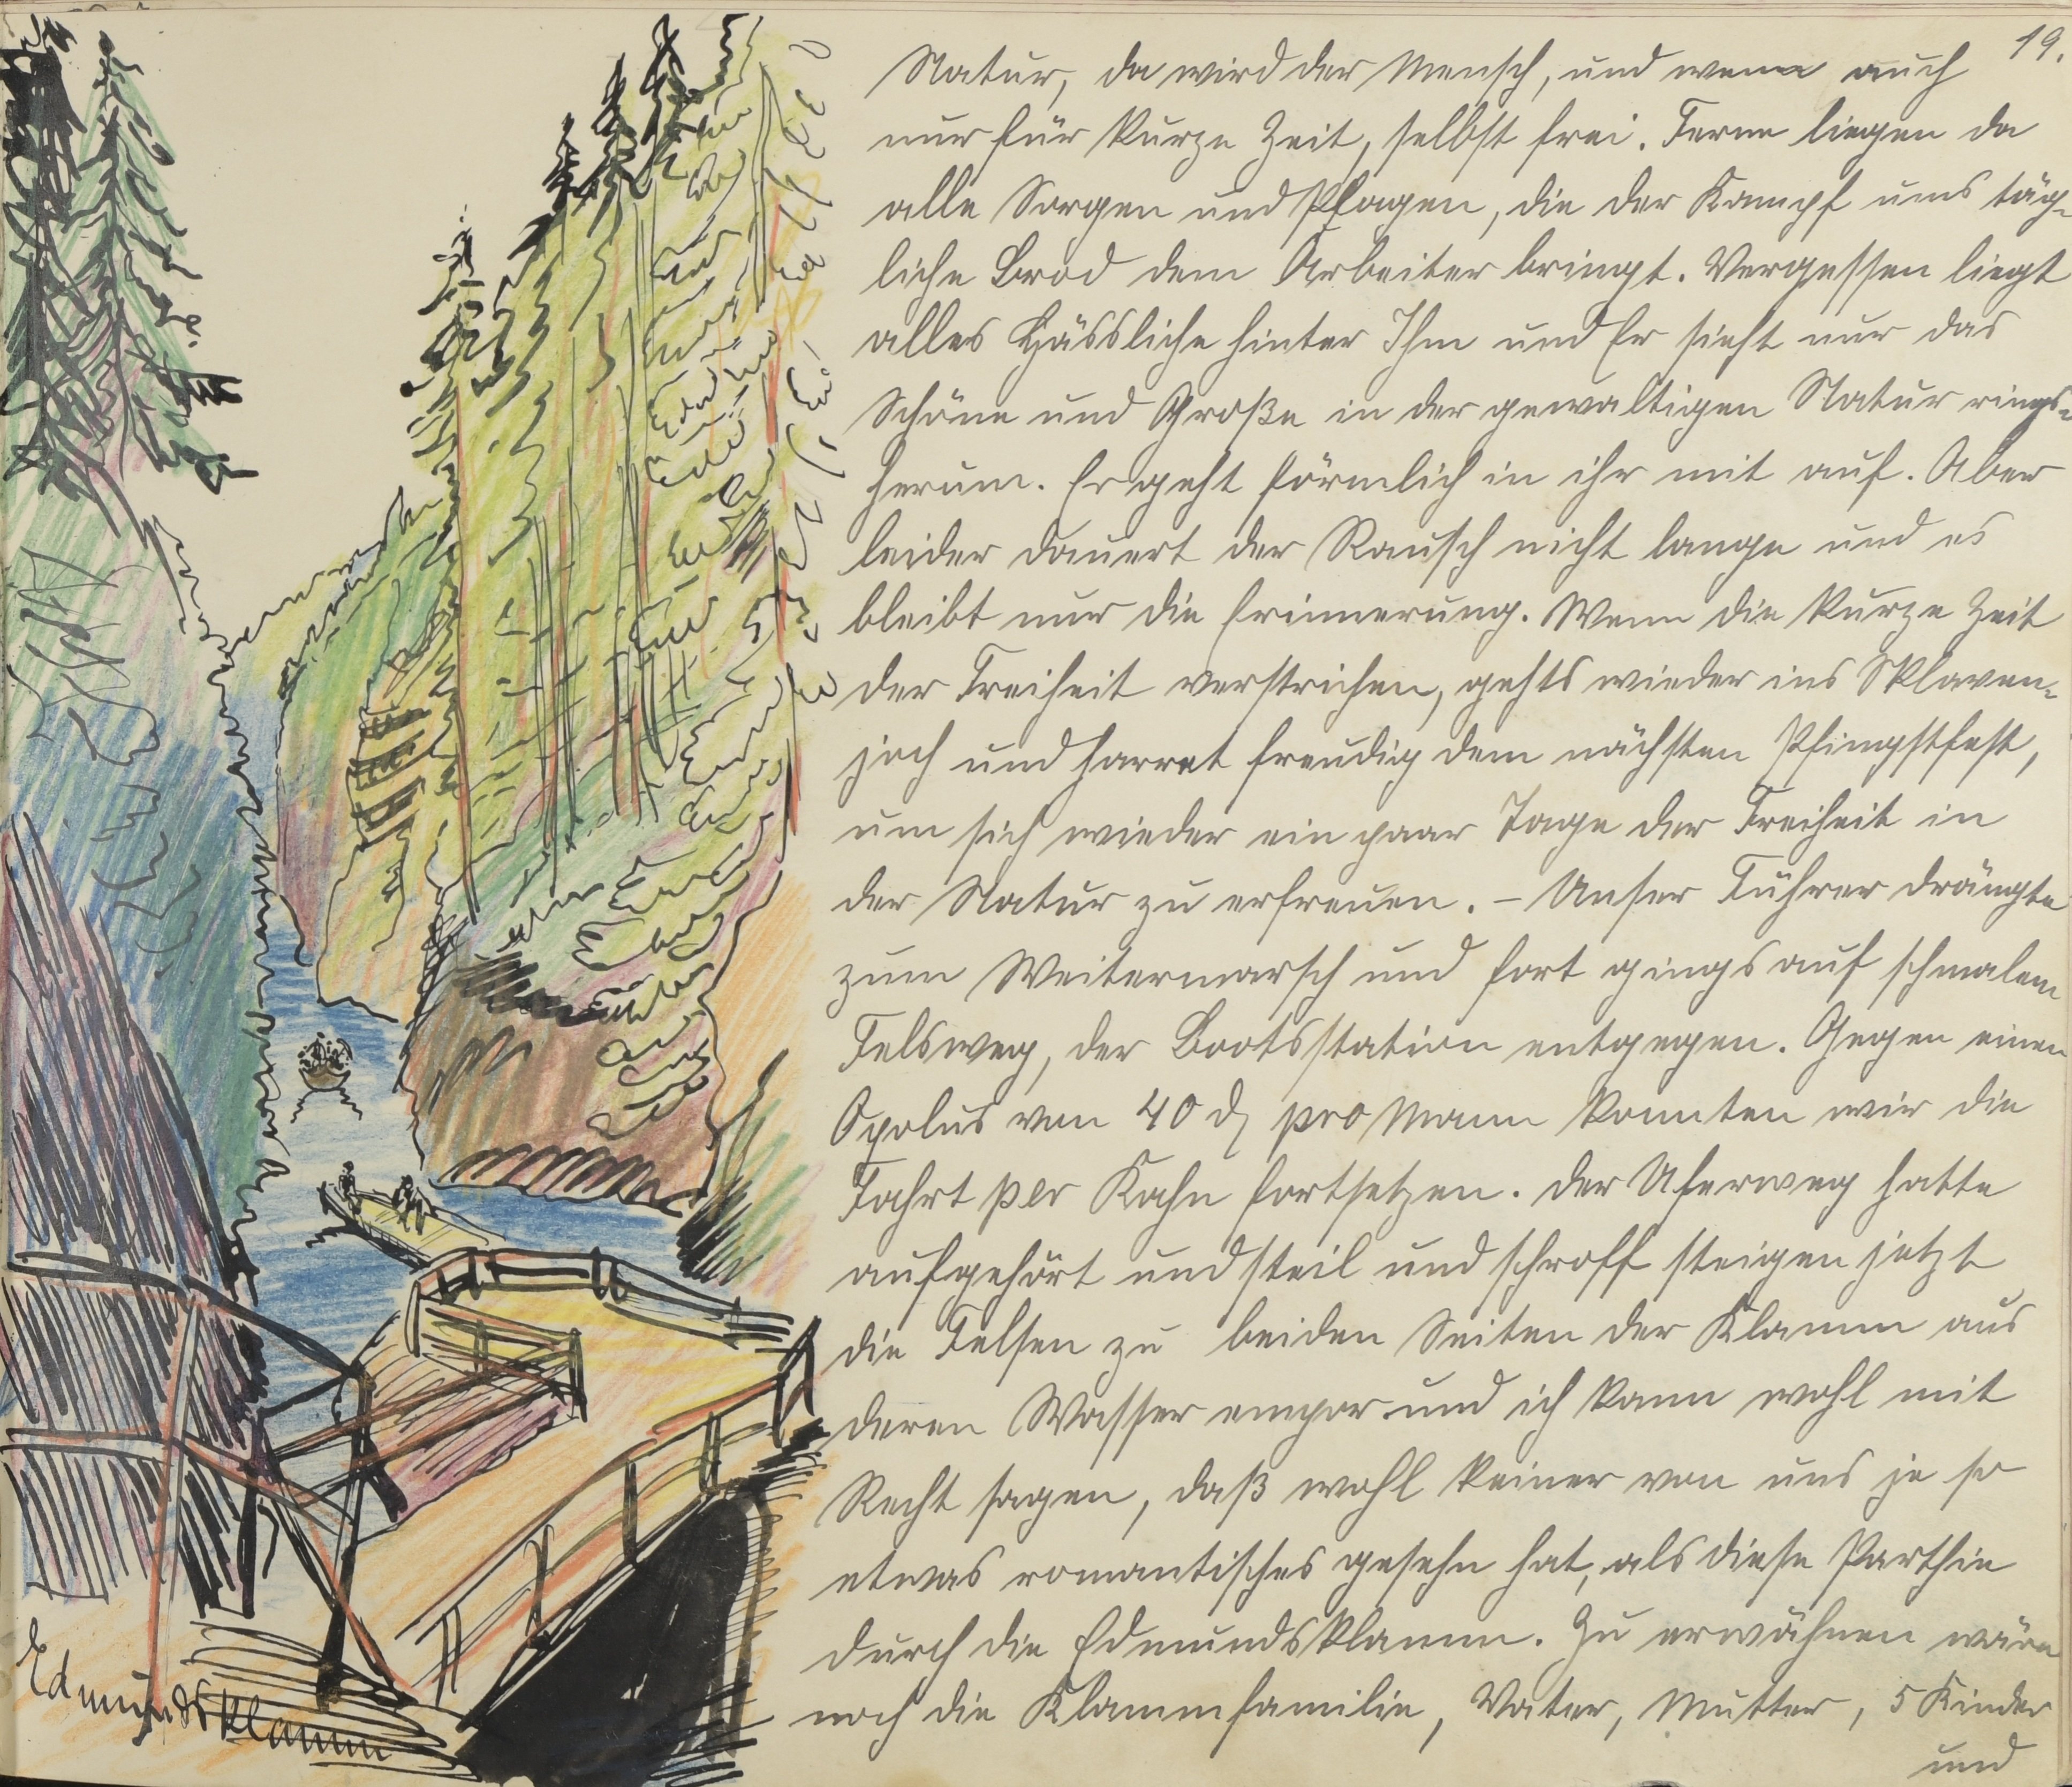 19.
Natur, da wird der Mensch, und wenn auch
nur für kurze Zeit, selbst frei. Ferne liegen da
alle Sorgen und Plagen, die der Kampf ums täg-
liche Brod dem Arbeiter bringt. Vergessen liegt
alles Hässliche hinter Ihm und Er sieht nur das
Schöne und Große in der gewaltigen Natur rings-
herum. Er geht förmlich in ihr mit auf. Aber
leider dauert der Rausch nicht lange und es
bleibt nur die Erinnerung. Wenn die kurze Zeit
der Freiheit verstrichen, gehts wieder ins Sklaven-
joch und harret freudig dem nächsten Pfingstfest,
um sich wieder ein paar Tage der Freiheit in
der Natur zu erfreuen. – Unser Führer drängte
zum Weitermarsch und fort gings auf schmalem
Felsweg, der Bootsstation entgegen. Gegen einen
Opolus von 40 ₰ pro Mann konnten wir die
Fahrt per Kahn fortsetzen. Der Uferweg hatte
aufgehört und steil und schroff steigen jetzt
die Felsen zu beiden Seiten der Klamm aus
deren Wasser empor und ich kann wohl mit
Recht sagen, daß wohl keiner von uns je so
etwas romantisches gesehn hat, als diese Parthie
durch die Edmundsklamm. Zu erwähnen wäre
noch die Klammfamilie, Vater, Mutter, 5 Kinder
und
Edmundsklamm